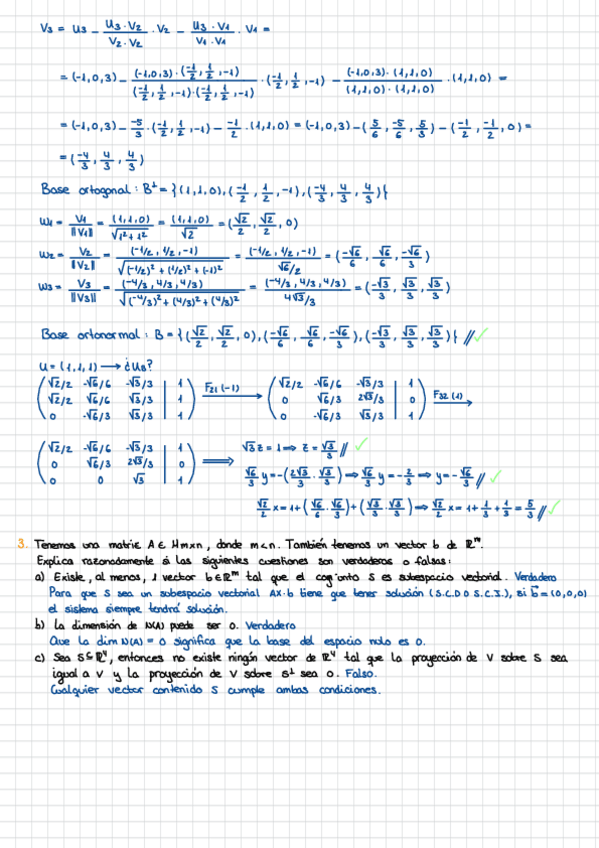 V3 = U3 - (U3·V2)/(V2·V2) · V2 - (U3·V1)/(V1·V1) · V1 =
= (-1,0,3) - ((-1,0,3)·(-1/2, 1/2, -1))/((-1/2, 1/2, -1)·(-1/2, 1/2, -1)) · (-1/2, 1/2, -1) - ((-1,0,3)·(1,1,0))/((1,1,0)·(1,1,0)) · (1,1,0) =
= (-1,0,3) - -5/3 · (-1/2, 1/2, -1) - -1/2 · (1,1,0) = (-1,0,3) - (5/6, -5/6, 5/3) - (-1/2, -1/2, 0) =
= (-4/3, 4/3, 4/3)
Base ortogonal: B⊥ = {(1,1,0), (-1/2, 1/2, -1), (-4/3, 4/3, 4/3)}
W1 = V1/||V1|| = (1,1,0)/√(1²+1²) = (1,1,0)/√2 = (√2/2, √2/2, 0)
W2 = V2/||V2|| = (-1/2, 1/2, -1)/√((-1/2)² + (1/2)² + (-1)²) = (-1/2, 1/2, -1)/(√6/2) = (-√6/6, √6/6, -√6/3)
W3 = V3/||V3|| = (-4/3, 4/3, 4/3)/√((-4/3)² + (4/3)² + (4/3)²) = (-4/3, 4/3, 4/3)/(4√3/3) = (-√3/3, √3/3, √3/3)
Base ortonormal: B = {(√2/2, √2/2, 0), (-√6/6, √6/6, -√6/3), (-√3/3, √3/3, √3/3)} // ✓
U = (1,1,1) → ¿UB?
( √2/2 -√6/6 -√3/3 | 1 ) ( √2/2 -√6/6 -√3/3 | 1 )
( √2/2 √6/6 √3/3 | 1 ) F21(-1) → ( 0 √6/3 2√3/3 | 0 ) F32(1) →
( 0 -√6/3 √3/3 | 1 ) ( 0 -√6/3 √3/3 | 1 )
( √2/2 -√6/6 -√3/3 | 1 ) √3 z = 1 ⇒ z = √3/3 // ✓
( 0 √6/3 2√3/3 | 0 ) ⇒ √6/3 y = -(2√3/3 · √3/3) ⇒ √6/3 y = -2/3 ⇒ y = -√6/3 // ✓
( 0 0 √3 | 1 )
√2/2 x = 1 + (√6/6 · √6/3) + (√3/3 · √3/3) ⇒ √2/2 x = 1 + 1/3 + 1/3 = 5/3 // ✓
3. Tenemos una matriz A ∈ Mmxn, donde m<n. También tenemos un vector b de ℝᵐ.
Explica razonadamente si las siguientes cuestiones son verdaderas o falsas:
a) Existe, al menos, 1 vector b∈ℝᵐ tal que el conjunto S es subespacio vectorial. Verdadero
Para que S sea un subespacio vectorial AX=b tiene que tener solución (S.C.D O S.C.I.), si b⃗ = (0,0,0)
el sistema siempre tendrá solución.
b) la dimensión de N(A) puede ser 0. Verdadero
Que la dim N(A) = 0 significa que la base del espacio nulo es 0.
c) Sea S⊆ℝ⁴, entonces no existe ningún vector de ℝ⁴ tal que la proyección de V sobre S sea
igual a V y la proyección de V sobre S⊥ sea 0. Falso.
Cualquier vector contenido S cumple ambas condiciones.